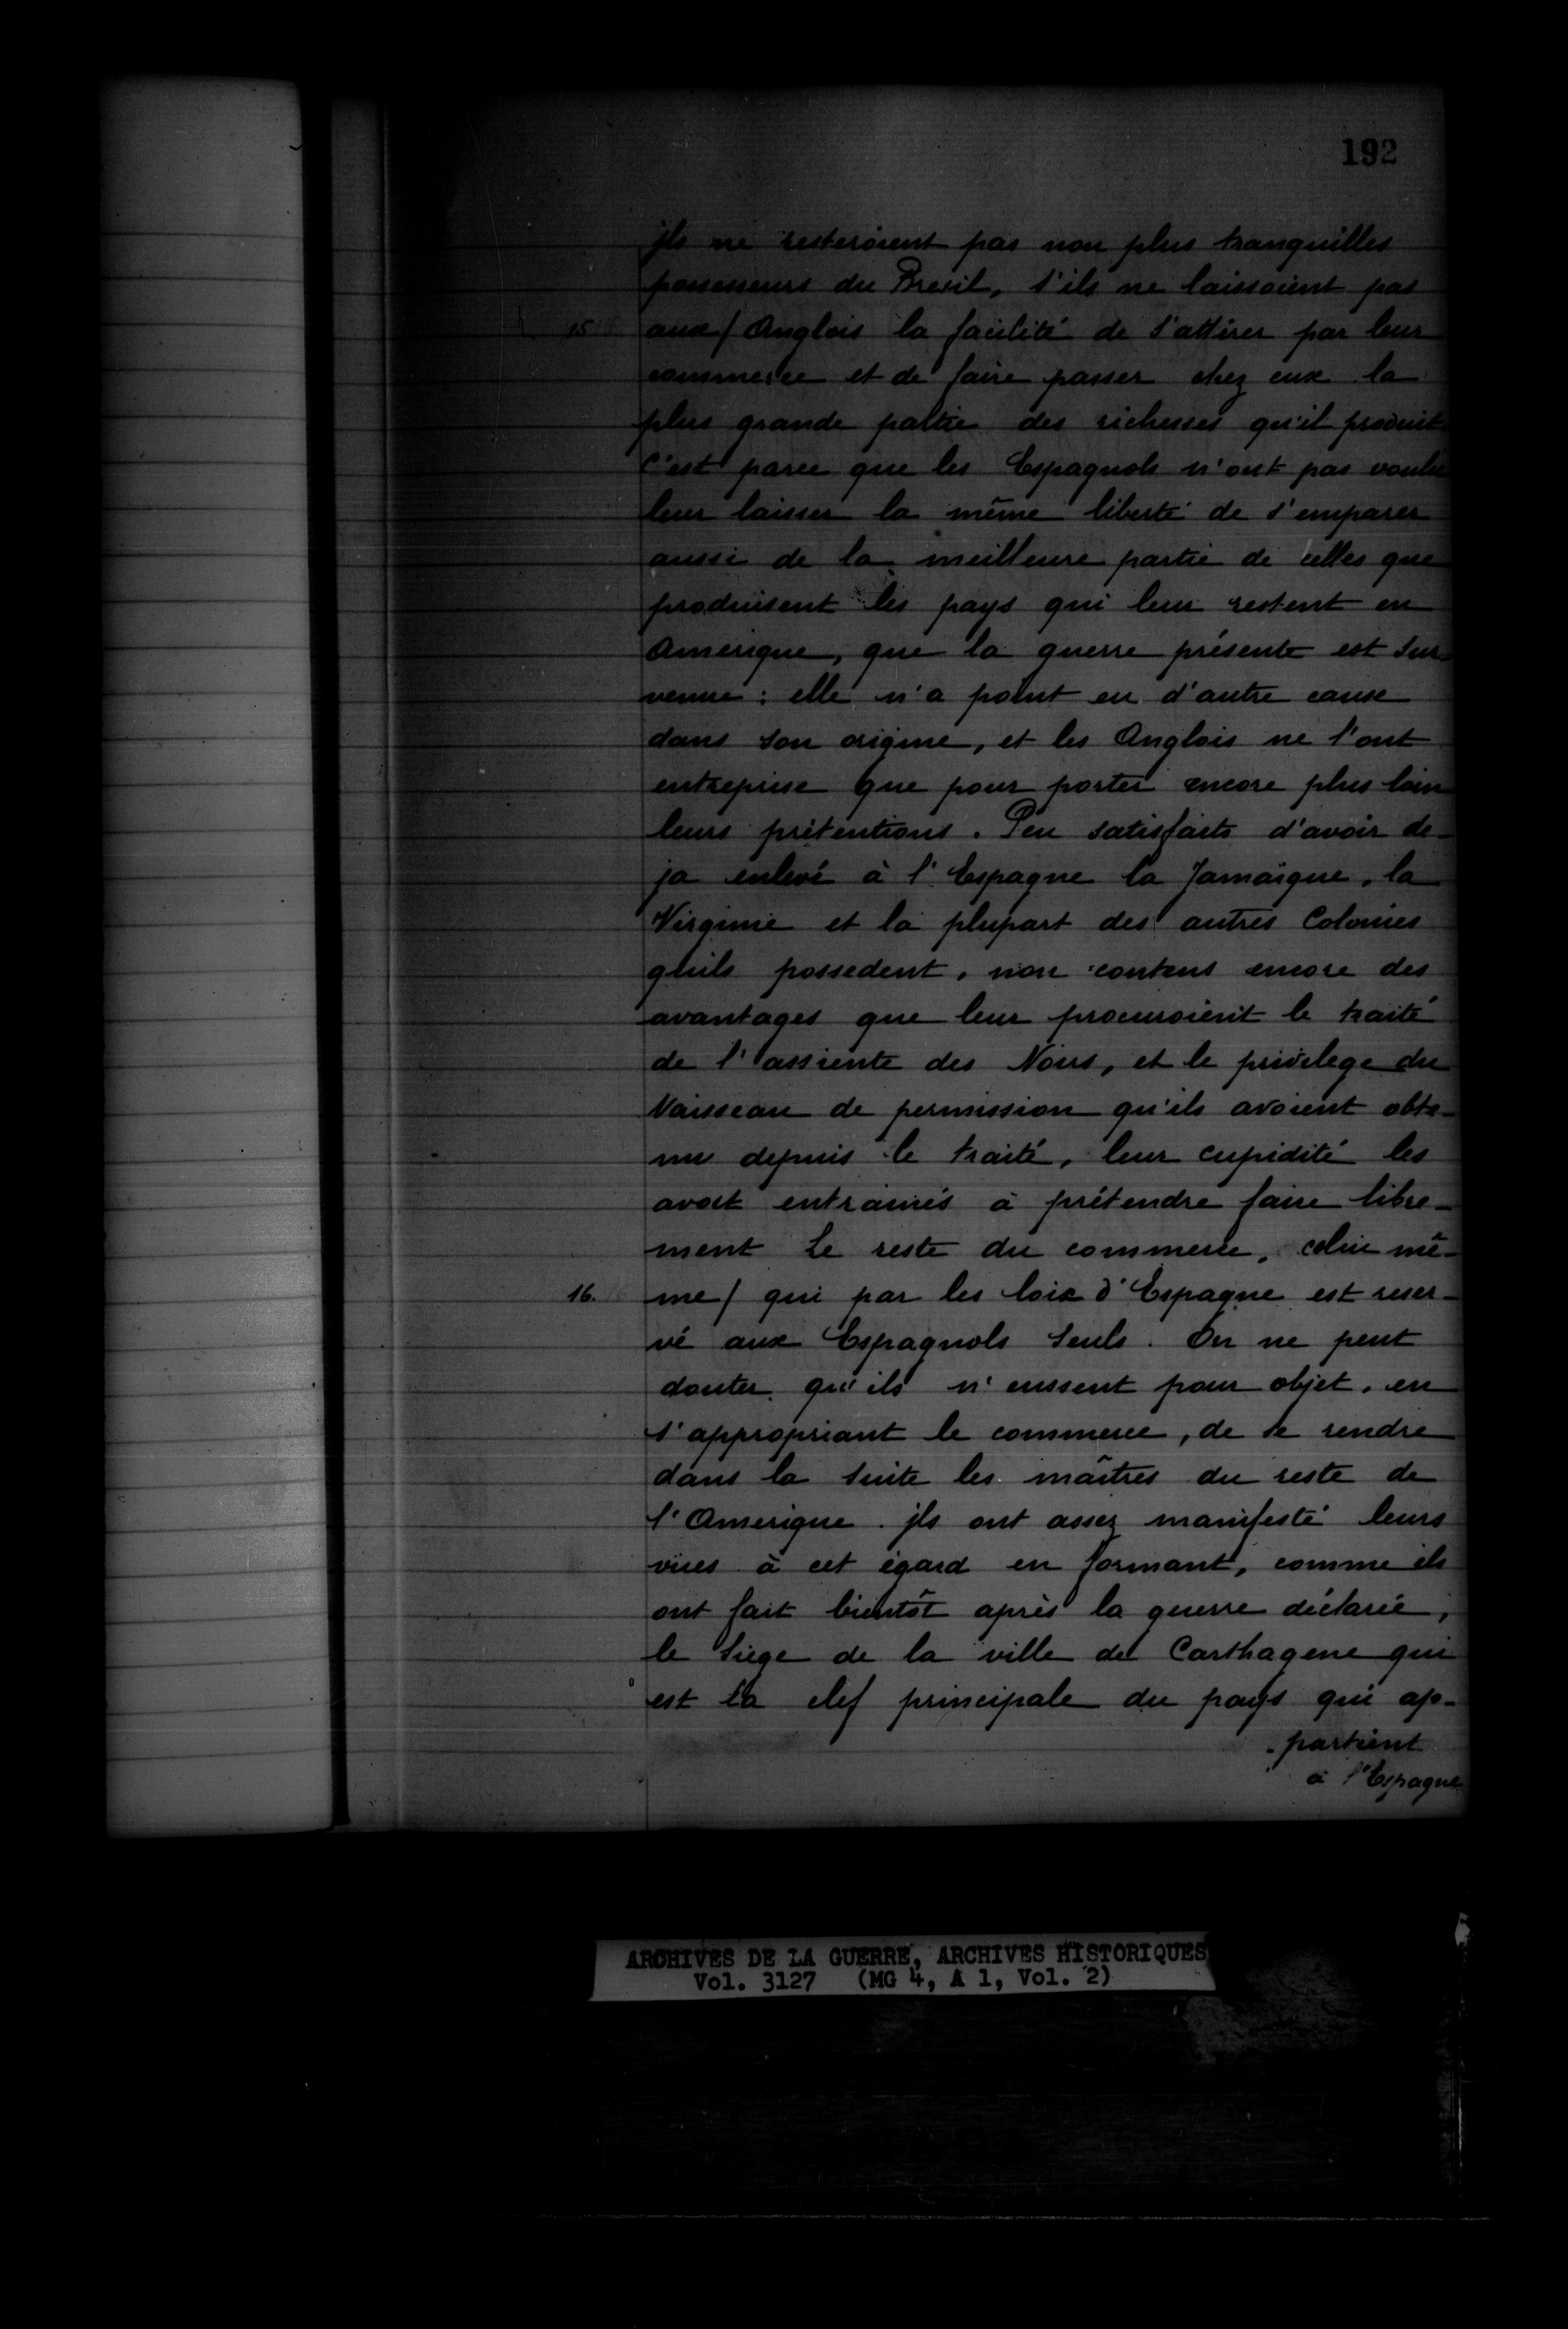 192
jls ne resteroient pas non plus tranquilles
possesseurs du Bresil, s'ils ne laissoient pas
15 aux/ Anglois la facilité de s'attirer par leur
commerce et de faire passer chez eux la
plus grande partie des richesses qu'il produit.
C'est parce que les Espagnols n'ont pas voulu
leur laisser la même liberté de s'emparer
aussi de la meilleure partie de celles que
produisent les pays qui leur restent en
Amerique, que la guerre présente est sur-
venue : elle n'a point eu d'autre cause
dans son origine, et les Anglois ne l'ont
entreprise que pour porter encore plus loin
leurs prétentions. Peu satisfaits d'avoir de-
ja enlevé à l'Espagne la Jamaïque, la
Virginie et la plupart des autres Colonies
qu'ils possedent, non contens encore des
avantages que leur procuroient le traité
de l'assiente des Noirs, et le privilege du
Vaisseau de permission qu'ils avoient obte-
nu depuis le traité, leur cupidité les
avoit entrainés à prétendre faire libre-
ment le reste du commerce, celui mê-
16. me/ qui par les loix d'Espagne est reser-
vé aux Espagnols seuls. On ne peut
douter qu'ils n'eussent pour objet, en
s'appropriant le commerce, de se rendre
dans la suite les maîtres du reste de
l'Amerique. jls ont assez manifesté leurs
vues à cet égard en formant, comme ils
ont fait bientôt après la guerre déclarée,
le siege de la ville de Carthagene qui
est la clef principale du pays qui ap-
partient
à l'Espagne
ARCHIVES DE LA GUERRE, ARCHIVES HISTORIQUES
Vol. 3127 (MG 4, A 1, Vol. 2)